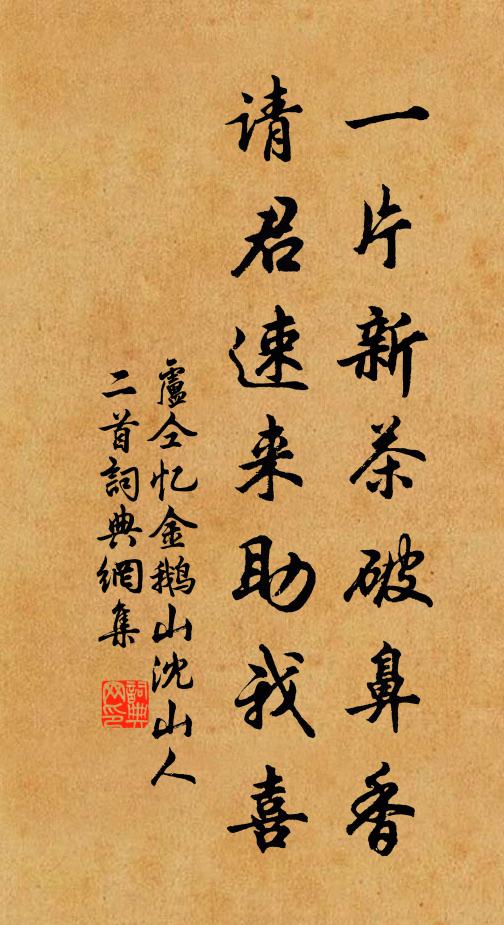 一片新茶破鼻香
请君速来助我喜
盧仝忆金鹅山沈山人
二首詞典網集
詞典
网印